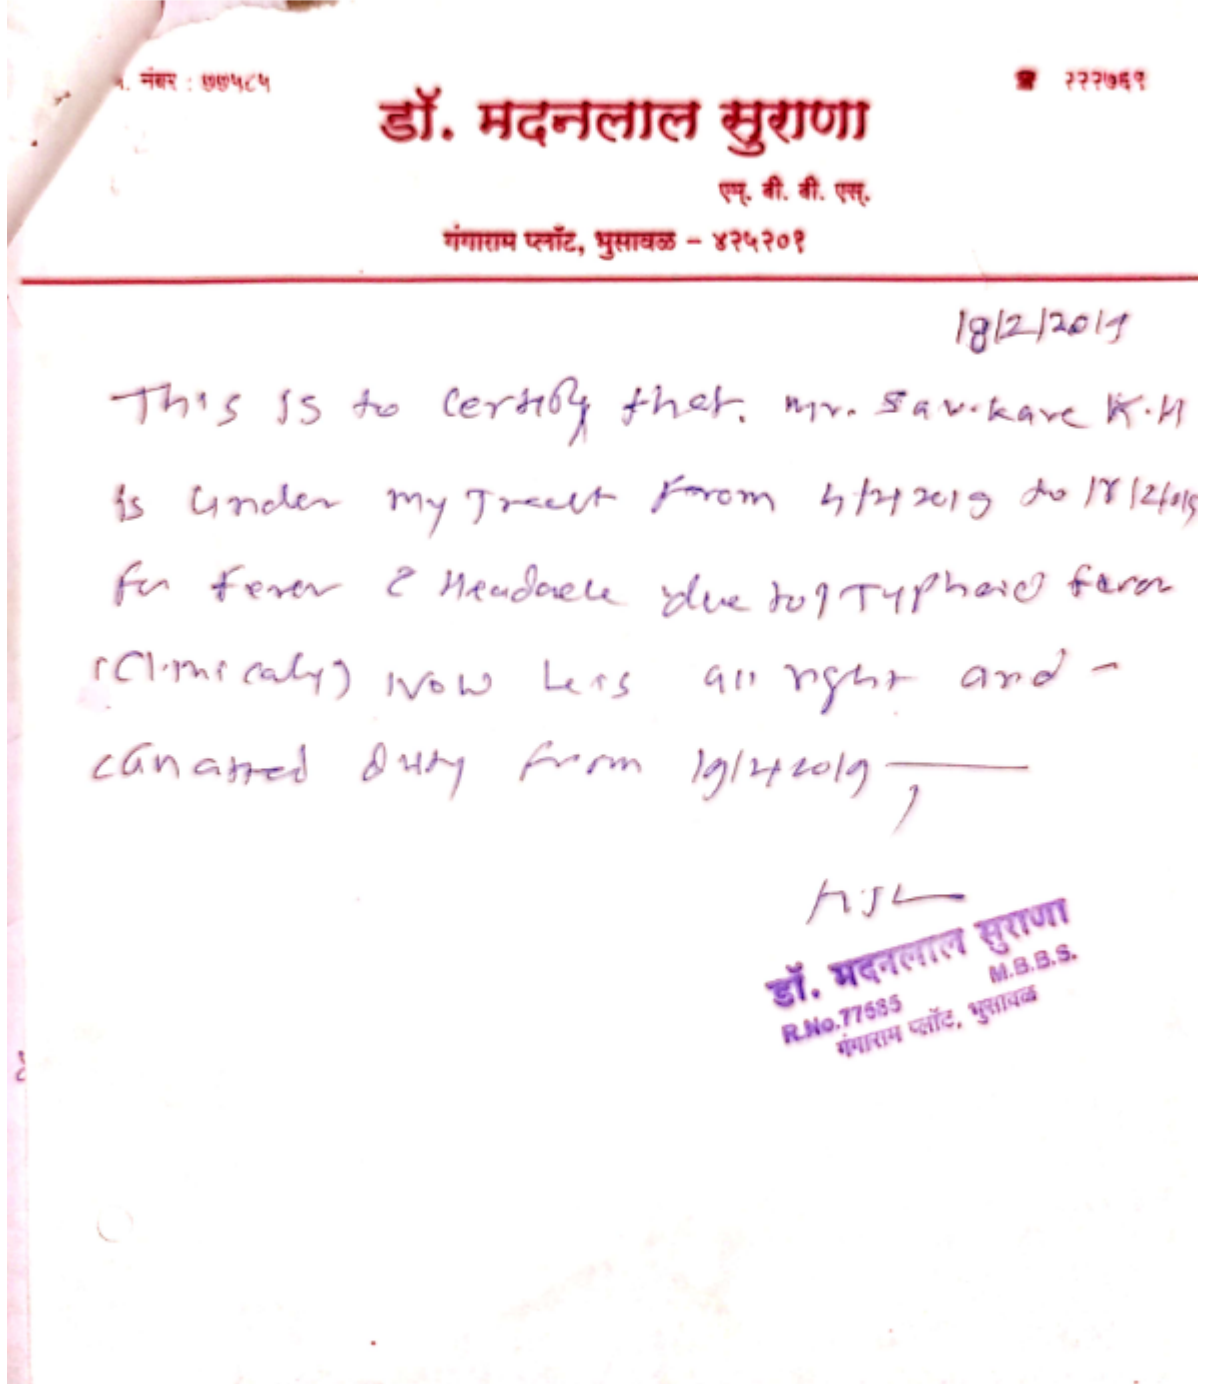 . नंबर : ७७५८५
☎ २२२७६९
डॉ. मदनलाल सुराणा
एम्. बी. बी. एस्.
गंगाराम प्लॉट, भुसावळ – ४२५२०१
18/2/2019
This is to certify that. Mr. Savkare K.H
is under my Treatt From 4/2/2019 to 18/2/2019
for fever & Headache due to Typhoid fever
(Clinicaly) Now he is all right and -
can attend duty from 19/2/2019
डॉ. मदनलाल सुराणा
M.B.B.S.
R.No.77585
गंगाराम प्लॉट, भुसावळ